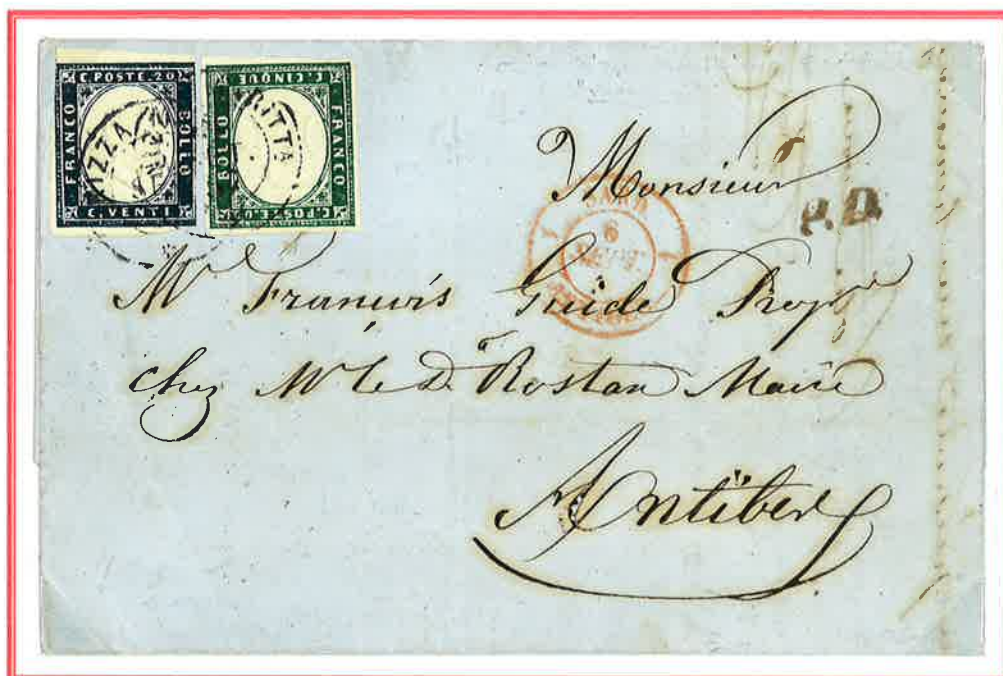 C. POSTE. 20
FRANCO
BOLLO
C. VENTI
C. CINQUE
FRANCO
BOLLO
C. POSTE. 5
RITTA
6
SEPT.
P.D.
Monsieur
Mr Francois Guide Propre
chez Mr le Dr Rostan Maire
Antibes